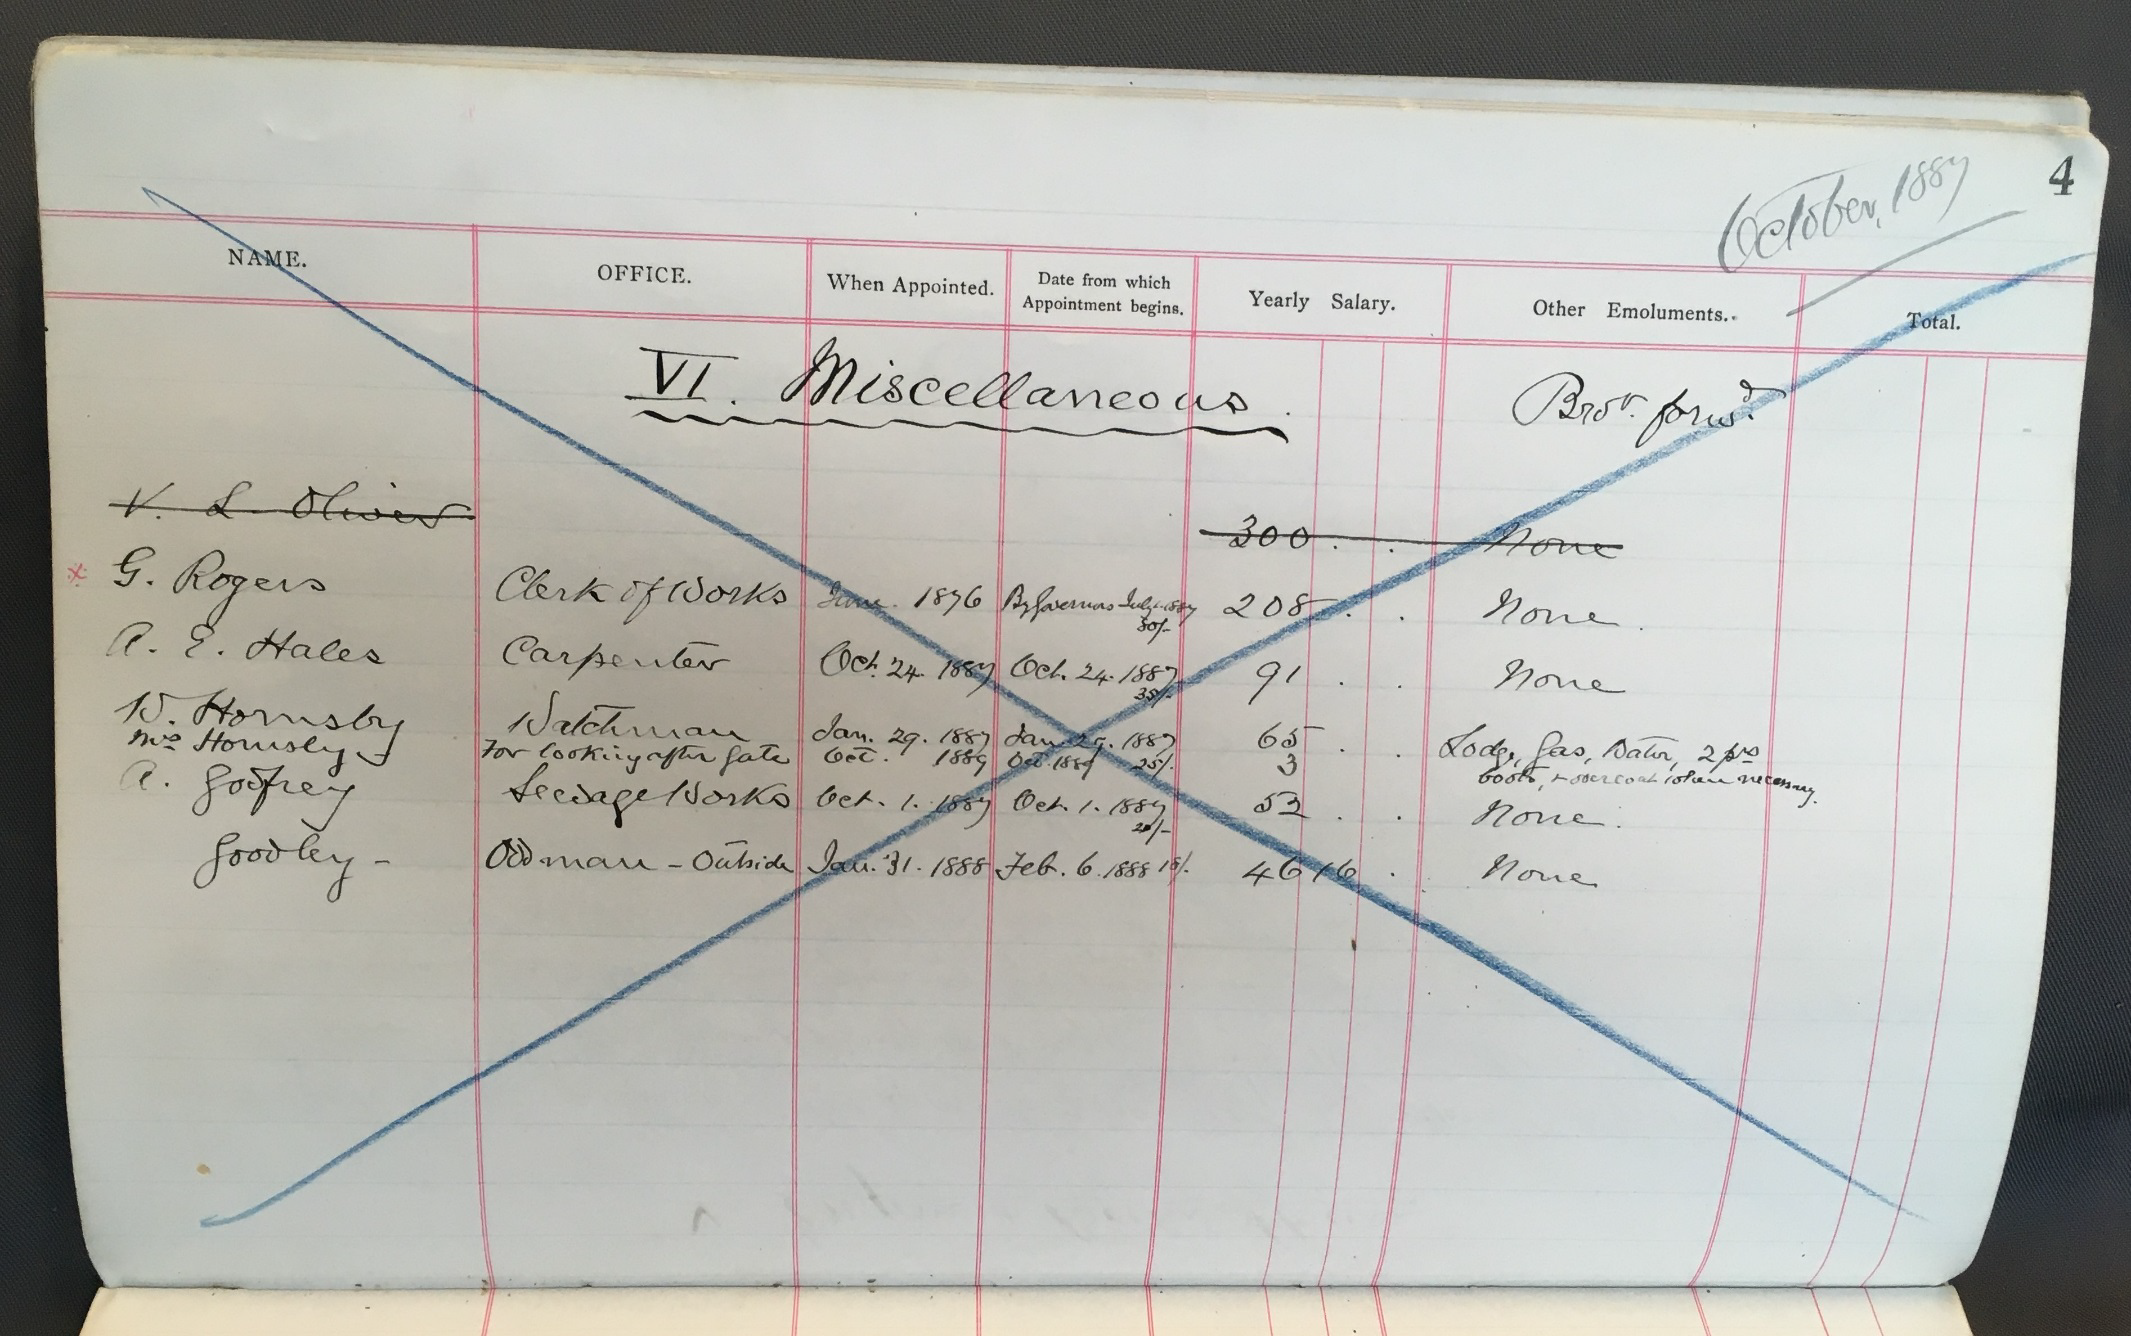 4
October, 1887
NAME. OFFICE. When Appointed. Date from which Appointment begins. Yearly Salary. Other Emoluments. Total.
VI. Miscellaneous. Broᵗ. forwᵈ.
V. L. Oliver 300 . . None
x G. Rogers Clerk of Works June. 1876 By Governors July 1887 80/- 208 . . None.
A. E. Hales Carpenter Oct. 24. 1887 Oct. 24. 1887 35/- 91 . . None
W. Hornsby Watchman Jan. 29. 1887 Jan. 29. 1887 25/. 65 . . Lodge, Gas, Water, 2 prs
Mrs Hornsby For looking after gate Oct. 1889 Oct. 1889 3 boots, + overcoat when necessary.
A. Godfrey Sewage Works Oct. 1. 1887 Oct. 1. 1887 20/- 52 . . None.
Goodley - Odd man - Outside Jan. 31. 1888 Feb. 6. 1888 18/. 46 16 . None